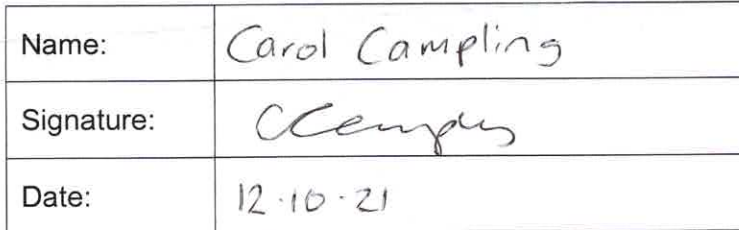 Name: Carol Campling
Signature:
Date: 12.10.21